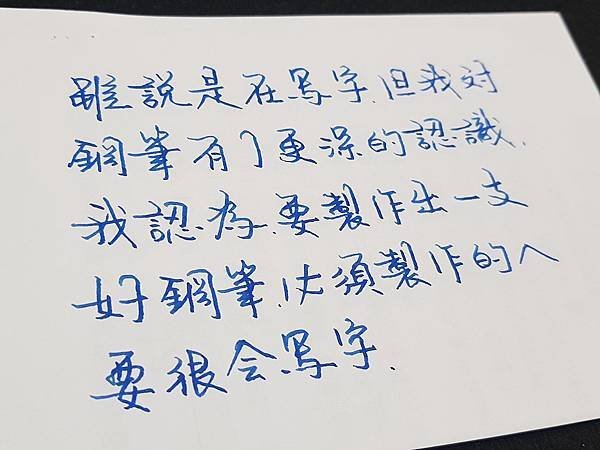 雖說是在写字.但我对
鋼筆有了更深的認識.
我認為.要製作出一支
好鋼筆.必須製作的人
要很会写字.